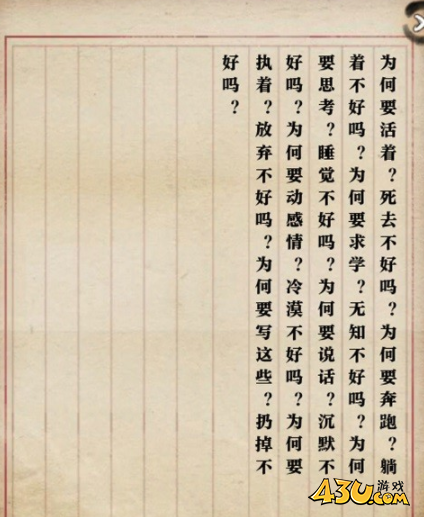 为何要活着？死去不好吗？为何要奔跑？躺
着不好吗？为何要求学？无知不好吗？为何
要思考？睡觉不好吗？为何要说话？沉默不
好吗？为何要动感情？冷漠不好吗？为何要
执着？放弃不好吗？为何要写这些？扔掉不
好吗？
43U游戏